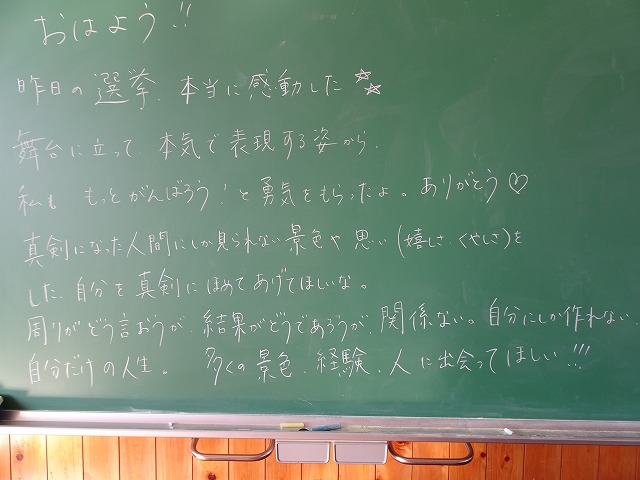 おはよう!!
昨日の選挙、本当に感動した☆☆
舞台に立って 本気で表現する姿から、
私も もっとがんばろう!と勇気をもらったよ。ありがとう♡
真剣になった人間にしか見られない景色や思い(嬉しさ、くやしさ)を
した、自分を真剣にほめてあげてほしいな。
周りがどう言おうが、結果がどうであろうが、関係ない。自分にしか作れない
自分だけの人生。 多くの景色、経験、人に出会ってほしい!!!